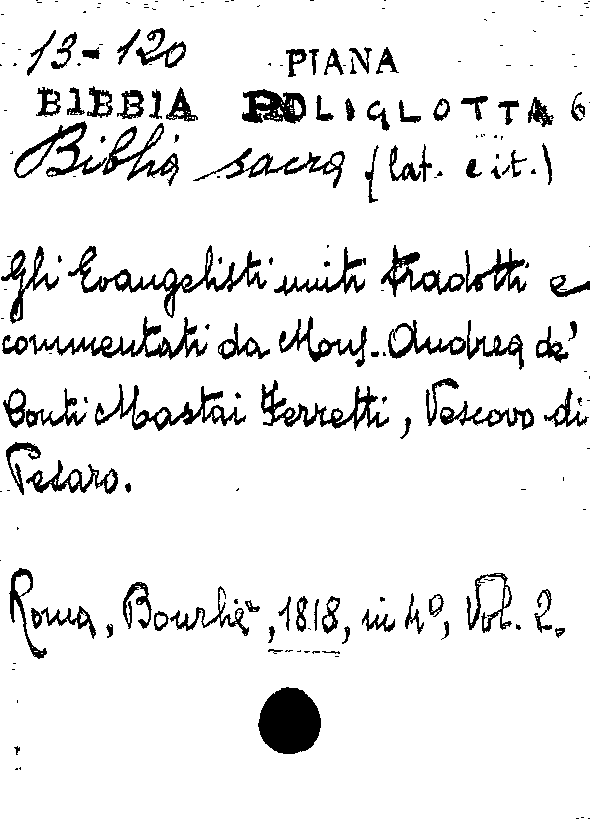 13-120
PIANA
BIBBIA POLIGLOTTA 6
Biblia sacra (lat. e it.)
Gli Evangelisti uniti tradotti e
commentati da Mons. Andrea de'
Conti Mastai Ferretti, Vescovo di
Pesaro.
Roma, Bourliè, 1818, in 4º, Vol. 2.